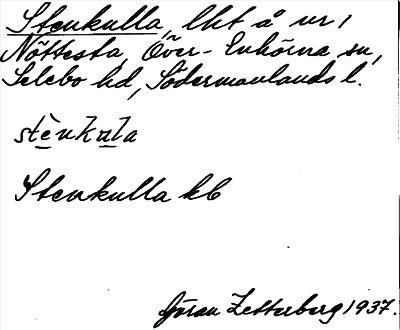 Stenkulla, lht å nr 1
Nöttesta, Över-Enhörna sn,
Selebo hd, Södermanlands l.
stènkula
Stenkulla kb
Göran Zetterberg 1937.